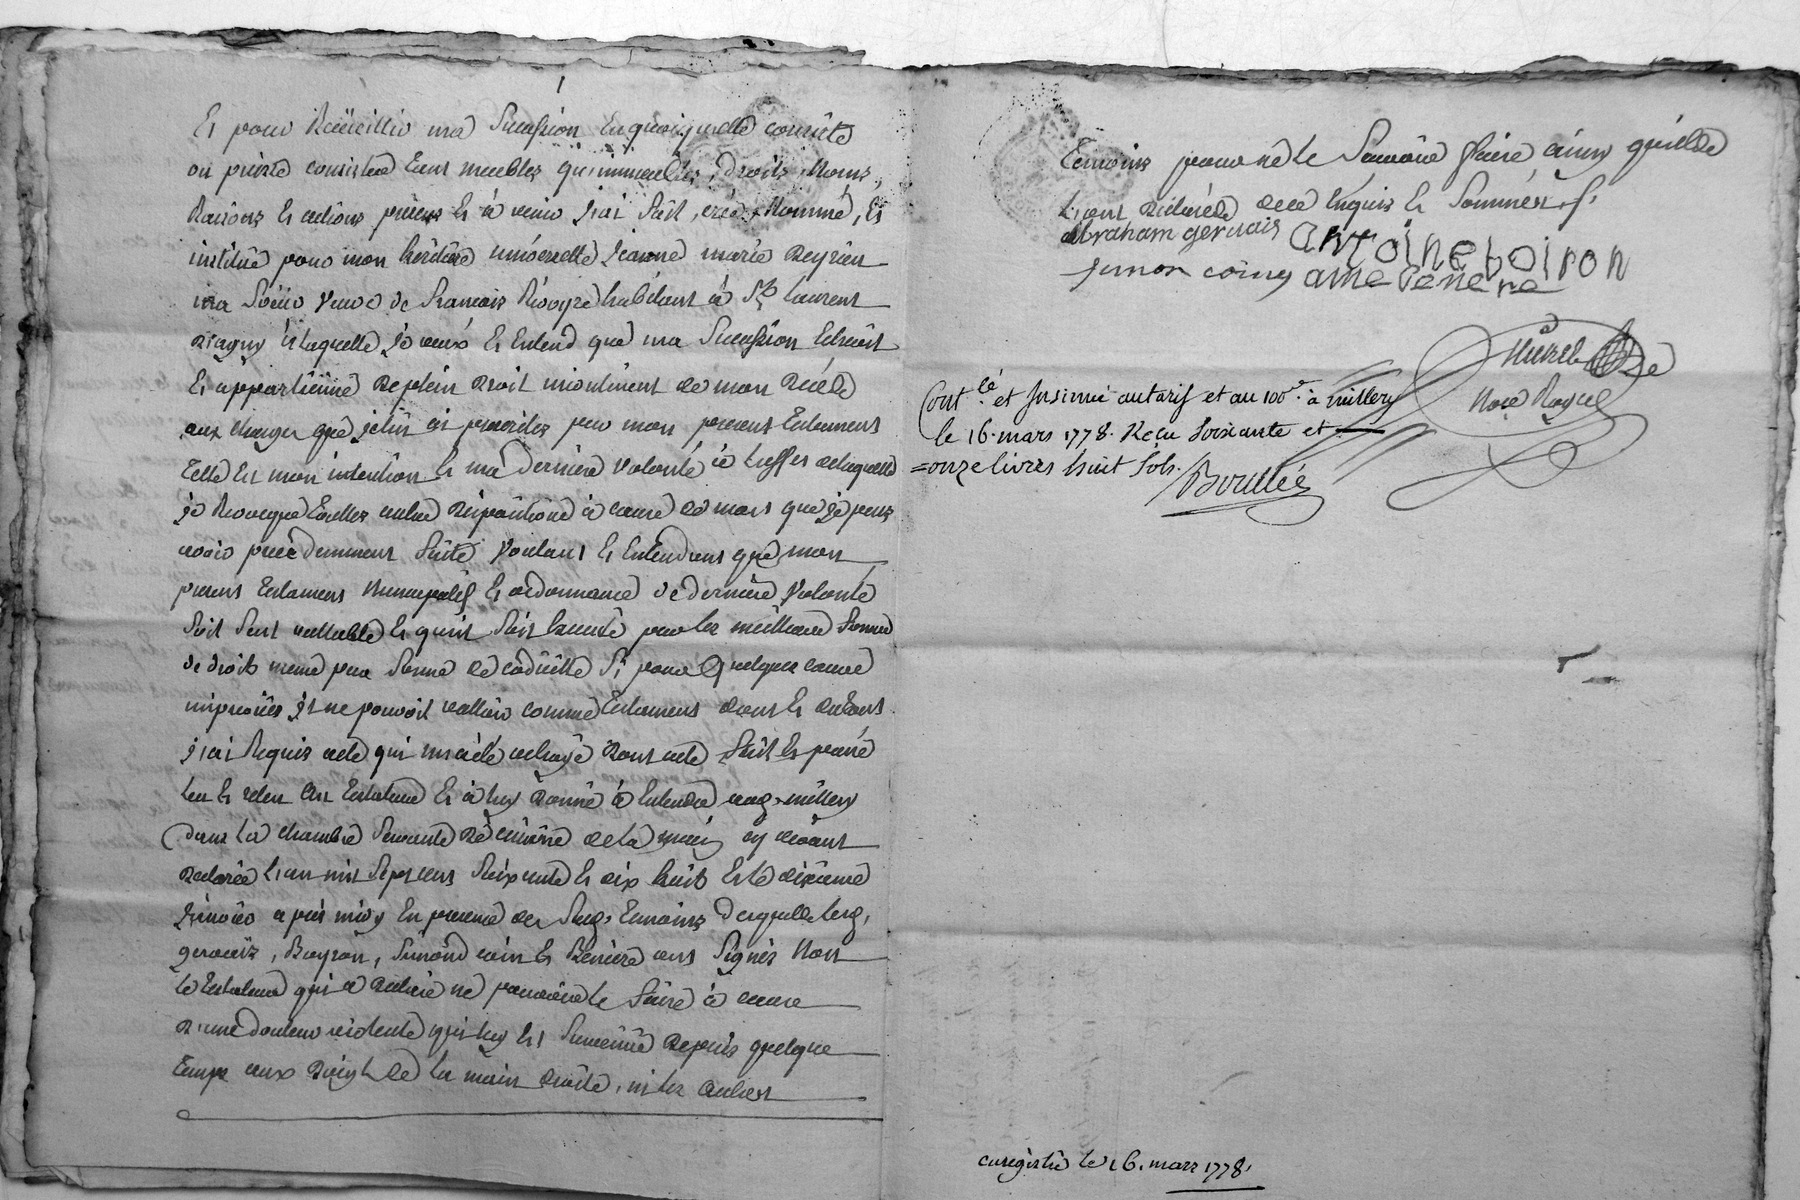 Et pour Recüeillir ma Succession En quoiquelle consiste
ou puisse consister tant meubles qu'immeubles, droits, Noms,
Raisons Et actions présens Et à venir j'ai fait, créé, Nommé, Et
institué pour mon héritiere universelle jeanne marie
ma Soeur veuve de francois habitant à St. Laurent
d'agny à laquelle je veux Et Entend que ma Succession
Et appartienne de plein droit incontinent de mon décéd
aux charges que je lui ai prescrites par mon present testament
telle Est mon intention Et ma derniere volonté à l'effet de laquelle
je Revoque toutes autre disposition à cause de mort que je peux
avoir precedemment faite voulant Et Entendant que mon
present testament Nuncupatif Et ordonnance de derniere volonté
soit seul vallable Et qu'il soit Executé par la meilleure forme
de droit meme par forme de codicille Si pour Quelque cause
imprevüe il ne pouvoit valloir comme testament dont Et du tout
j'ai Requis acte qui m'a été octroyé dont acte fait Et passé
leu Et releu au testateur Et à luy donné à Entendre millery
dans la chambre Servante de cuisine de la maison cy devant
declarée l'an mil sept cens soixante Et dix huit Et le dixieme
fevrier après midy En presence des temoins desquels
gervais, Boyron, Simond coin Et Benière ont Signés Non
le testateur qui a declaré ne pouvoir le faire à cause
d'une douleur violente qui luy Est survenüe depuis quelque
temps aux doigts de la main droite, ni les autres
temoins pour ne le Scavoir faire ainsy qu'ils
l'ont declaré de ce Enquis Et Sommés
abraham gervais antoine boiron
simon coing
Cont.lé et Insinué au tarif et au 100e. à millery
le 16. mars 1778. Reçu soixante et
=onze livres huit sols.
Boullée
Nore Royal
enregistré le 16. mars 1778.